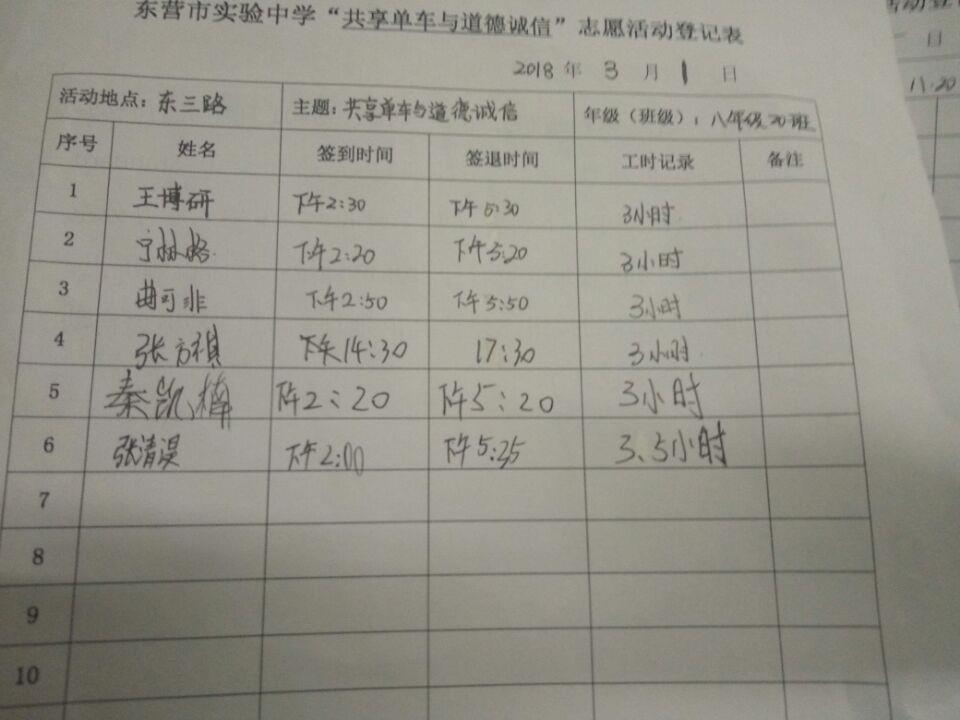 东营市实验中学“共享单车与道德诚信”志愿活动登记表
2018 年 3 月 1 日
活动地点：东三路 主题：共享单车与道德诚信 年级（班级）：八年级20班
序号 姓名 签到时间 签退时间 工时记录 备注
1 王博研 下午2:30 下午5:30 3小时
2 下午2:20 下午5:20 3小时
3 曲可非 下午2:50 下午5:50 3小时
4 张方祺 下午14:30 17:30 3小时
5 秦凯楠 下午2:20 下午5:20 3小时
6 张清淏 下午2:00 下午5:25 3.5小时
7
8
9
10
日
11:20